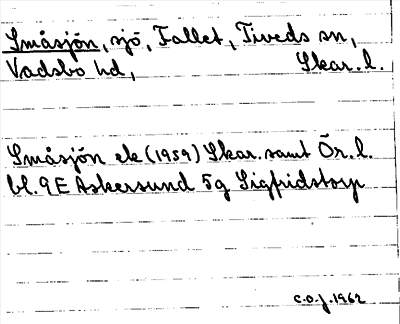 Småsjön, sjö, Fallet, Tiveds sn,
Vadsbo hd, Skar. l.
Småsjön ek (1959) Skar. samt Ör. l.
bl. 9E Askersund 5g Sigfridstorp
c.o.j. 1962